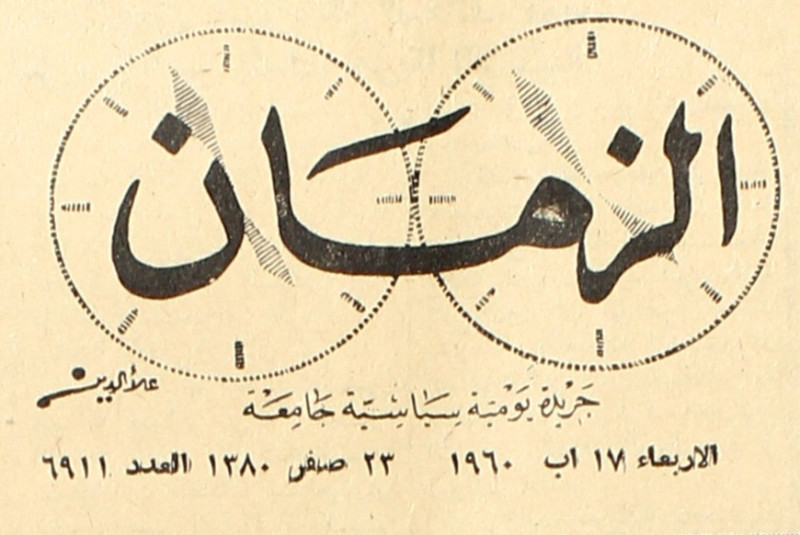 الزمان
علاء الدين
جريدة يومية سياسية جامعة
الاربعاء ١٧ اب ١٩٦٠ ٢٣ صفر ١٣٨٠ العدد ٦٩١١